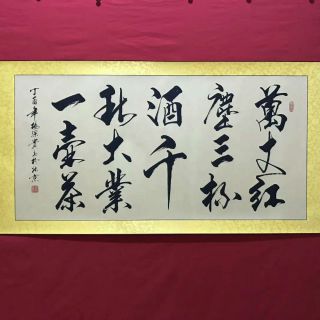 萬丈红
塵三杯
酒千
秋大業
一壷茶
丁酉年